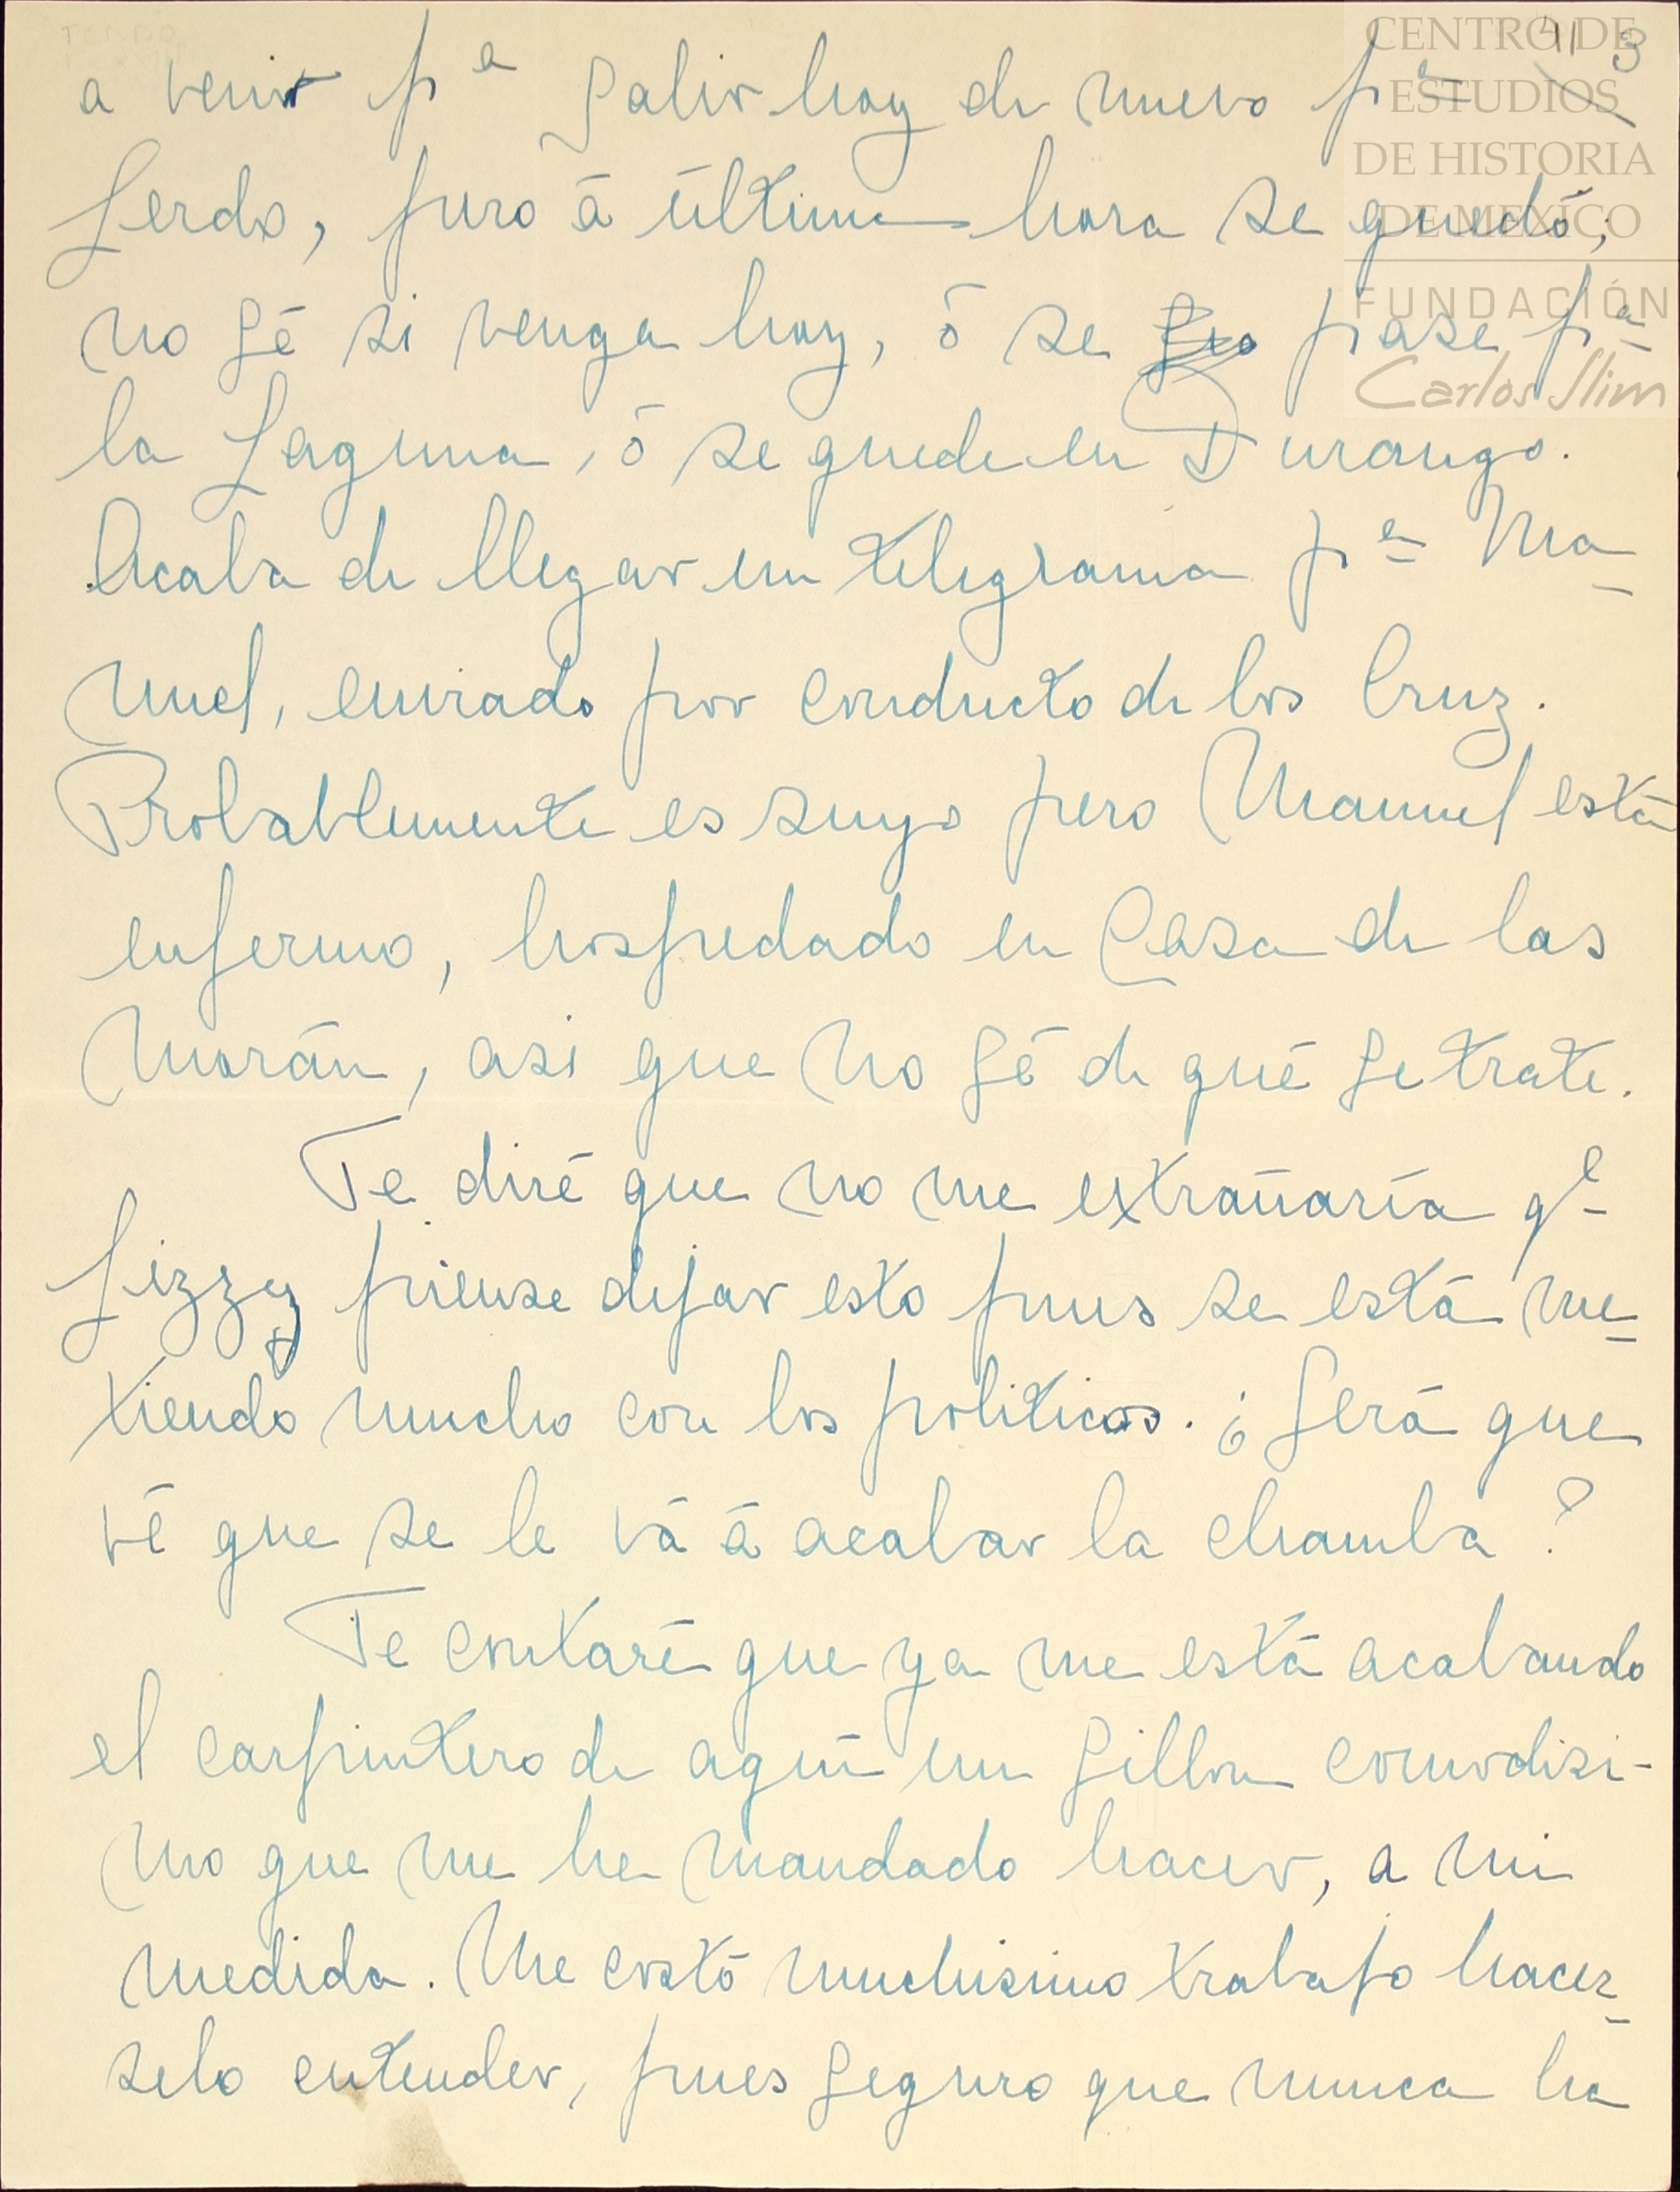 41 3
CENTRO DE
ESTUDIOS
DE HISTORIA
DE MEXICO
FUNDACIÓN
Carlos Slim
a venir pª salir hoy de nuevo pª
Lerdo, pero á última hora se quedó;
no sé si venga hoy, ó se pase pª
la Laguna, ó se quede en Durango.
Acaba de llegar un telegrama pª Ma-
nuel, enviado por conducto de los Cruz.
Probablemente es suyo pero Manuel está
enfermo, hospedado en Casa de las
Morán, asi que no sé de qué se trate.
Te diré que no me extrañaría qᵉ
Lizzy piense dejar esto pues se está me-
tiendo mucho con los politicos. ¿Será que
vé que se le vá á acabar la chamba?
Te contaré que ya me está acabando
el carpintero de aquí un sillon comodisi-
mo que me he mandado hacer, a mi
medida. Me costó muchisimo trabajo hacer-
selo entender, pues seguro que nunca ha